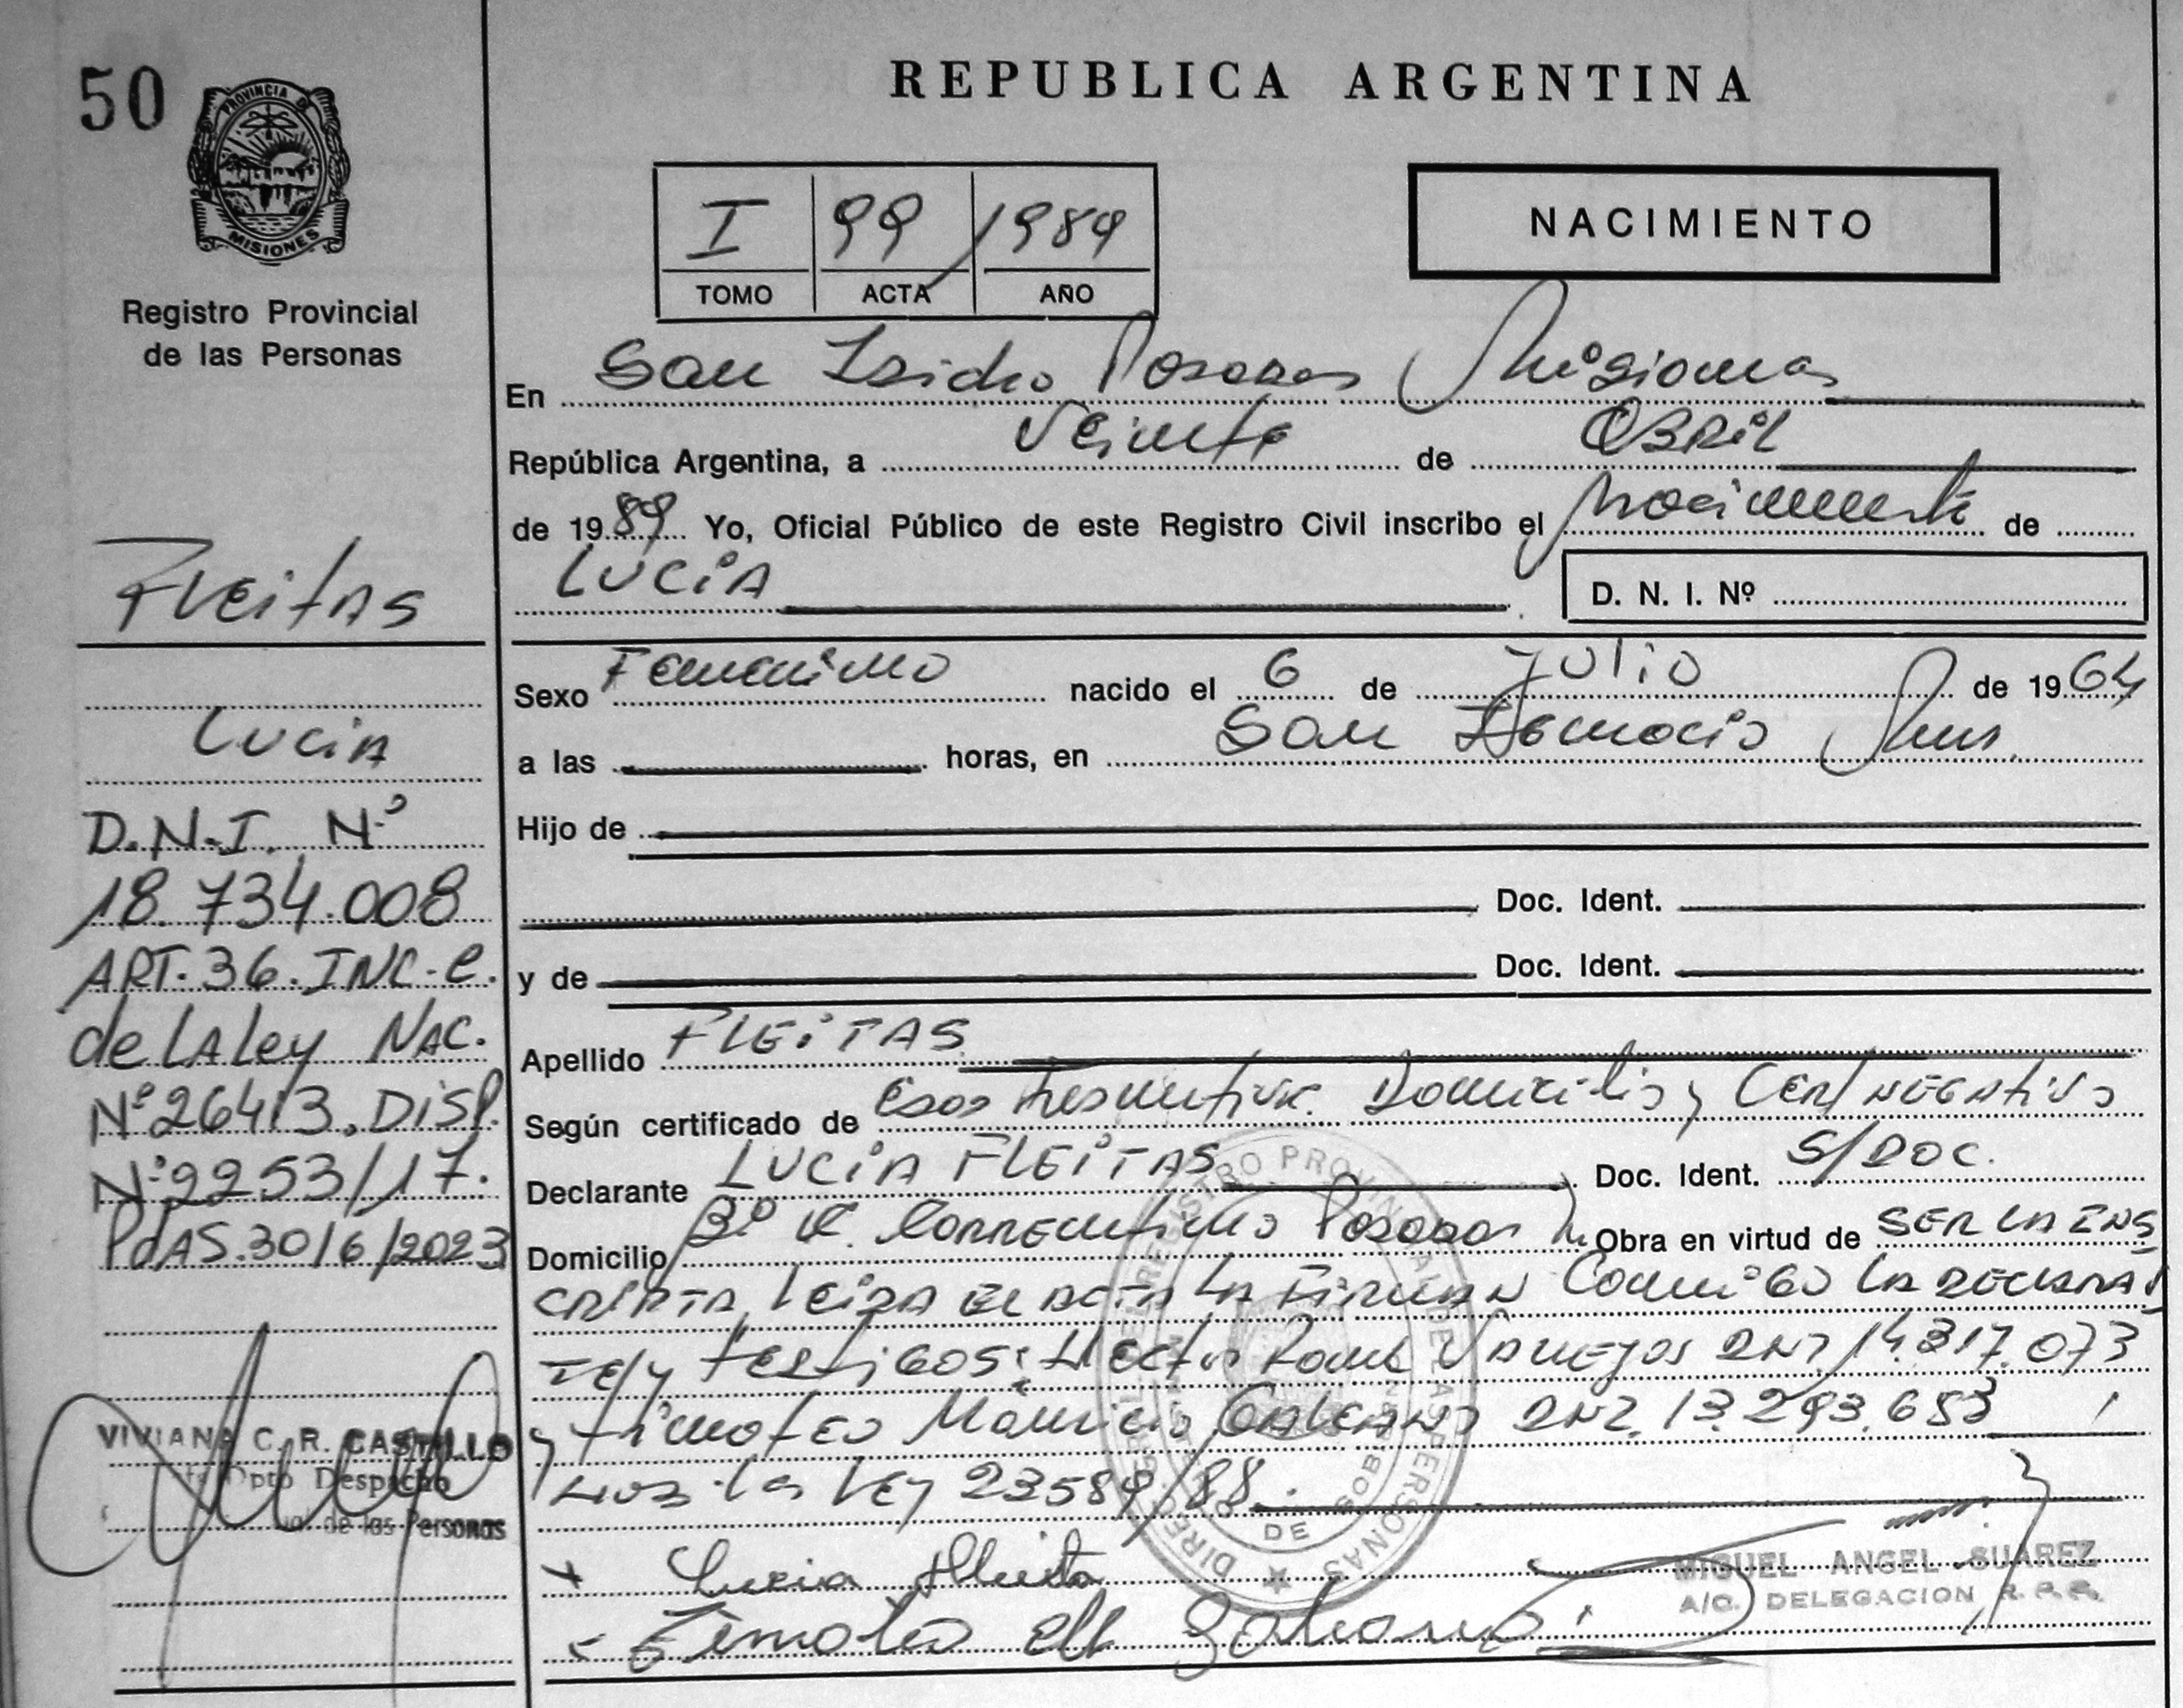 50
PROVINCIA D
MISIONES
Registro Provincial
de las Personas
REPUBLICA ARGENTINA
I 99 1989
TOMO ACTA AÑO
NACIMIENTO
En San Isidro Posadas Misiones
República Argentina, a Veinte de Abril
de 1989 Yo, Oficial Público de este Registro Civil inscribo el Nacimiento de
Lucia
D. N. I. Nº
Sexo Femenino nacido el 6 de Julio de 1964
a las horas, en San Ignacio Mnes.
Hijo de
Doc. Ident.
y de Doc. Ident.
Apellido FLEiTAS
Según certificado de Domicilio y Cert Negativo
Declarante LUCiA FLEiTAS Doc. Ident. S/DOC.
Domicilio Bº Posadas Obra en virtud de SER LA INS
CRIPTA, leida el acta la firman Conmigo la declaran
te y testigos: Hector Raul Vallejos DNI 14.317.073
y Timoteo Mauricio Galeano DNI. 13.293.653
la Ley 23589/88.
Lucia
Timoteo M Galeano
MIGUEL ANGEL SUAREZ
A/C. DELEGACION R. P. P.
Fleitas
Lucia
D.N.I. Nº
18.734.008
ART. 36. INC. C.
de LA Ley NAC.
Nº 26413. DISP.
Nº 2253/17.
PdAS. 30/6/2023
VIVIANA C. R. CASTILLO
Dpto Despacho
de las Personas